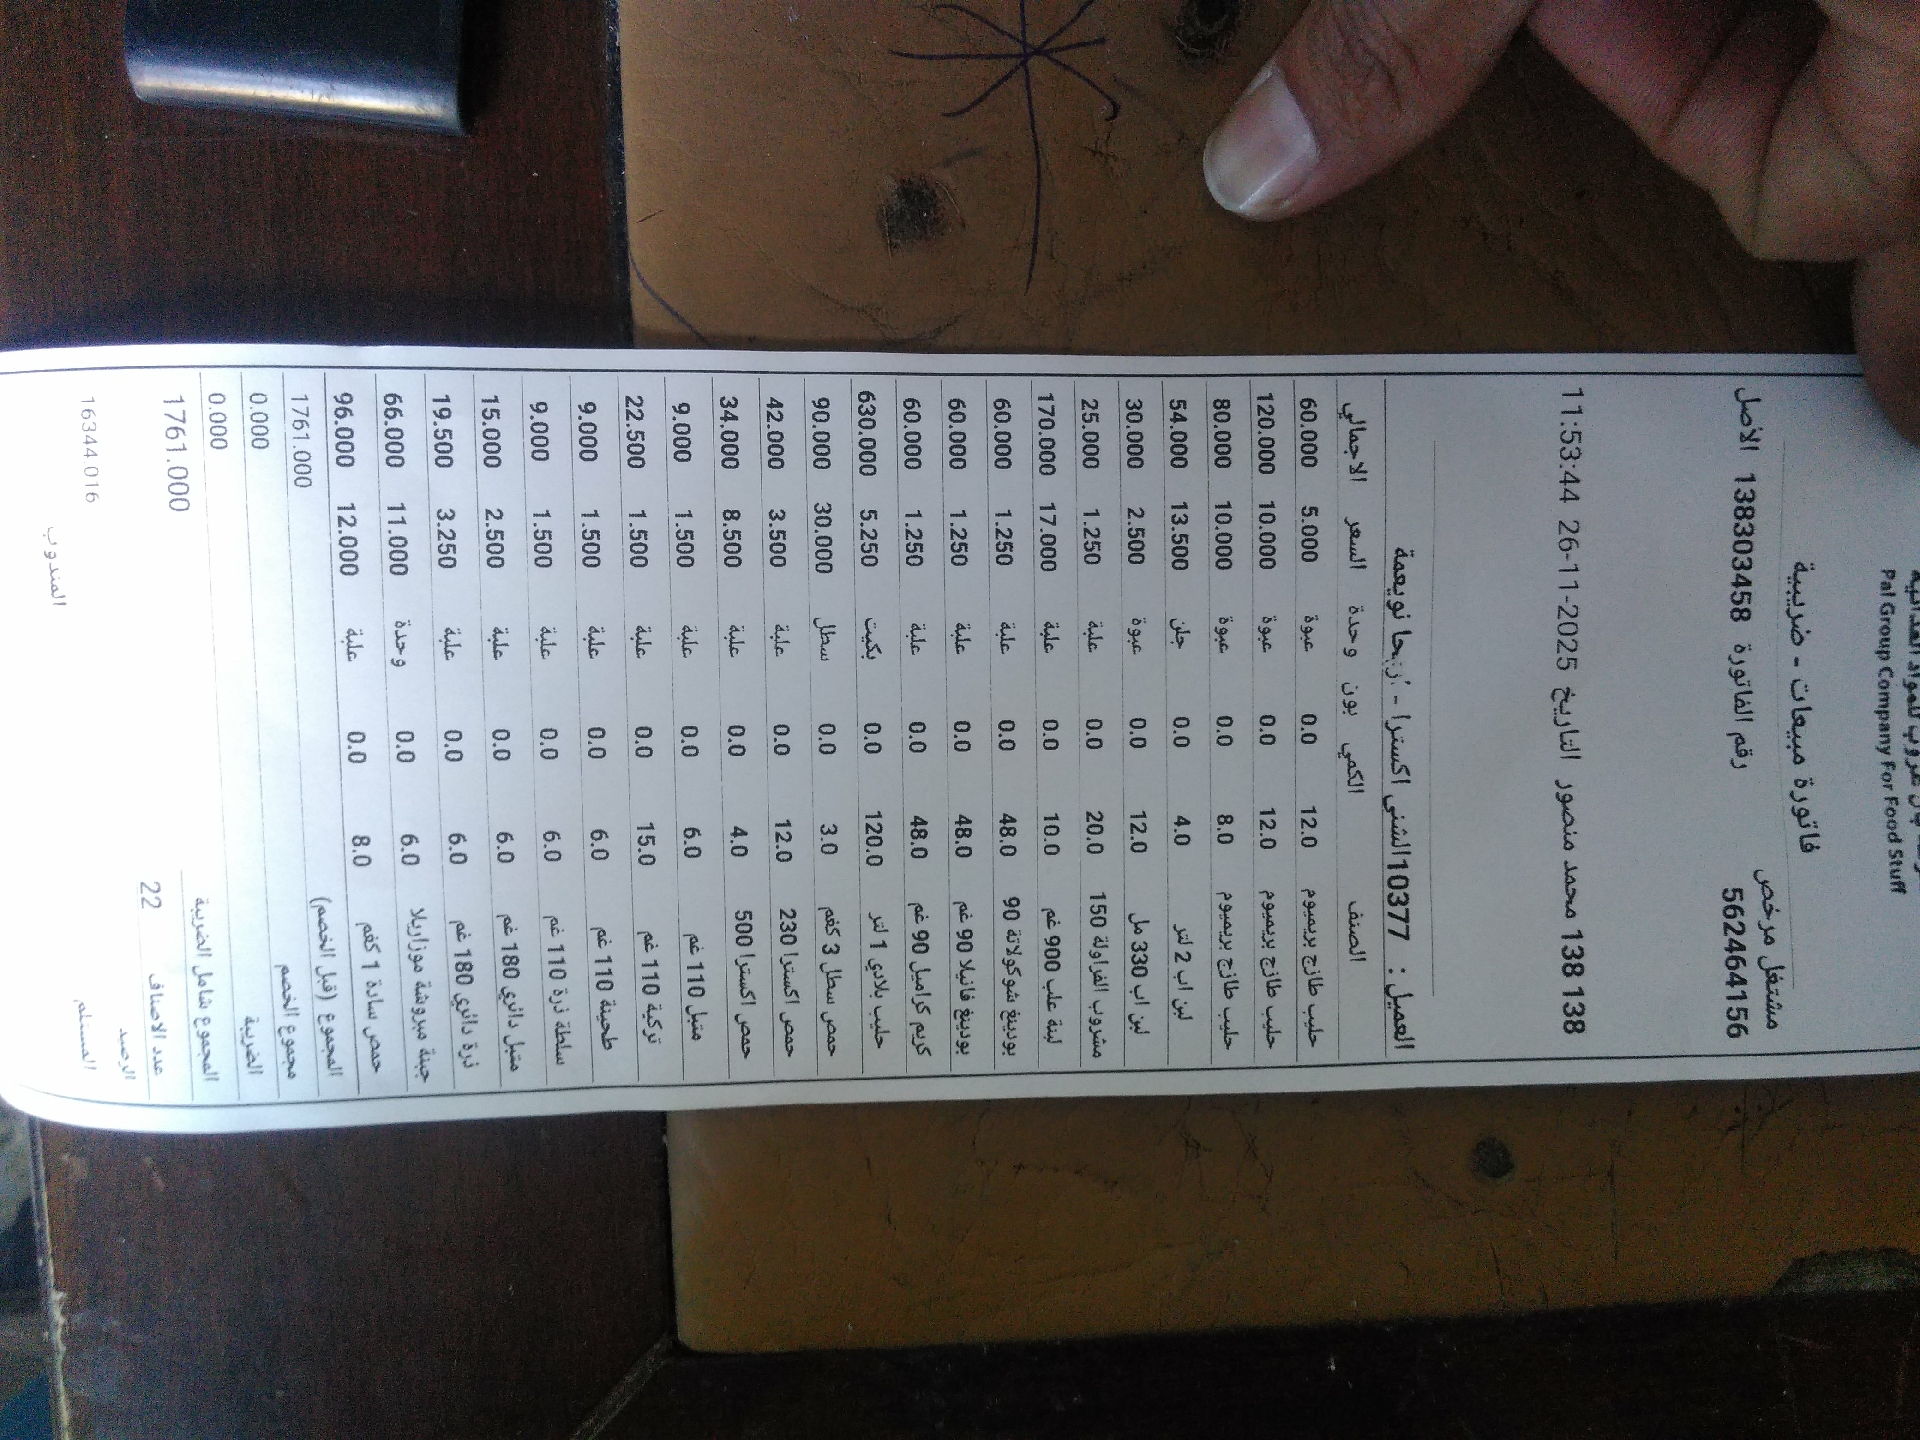 Pal Group Company For Food Stuff
فاتورة مبيعات - ضريبية
مشتغل مرخص
562464156 رقم الفاتورة 138303458 الأصل
138 138 محمد منصور التاريخ 26-11-2025 11:53:44
العميل : 10377 الشني اكسترا - نويعمة
الصنف الكمي بون وحدة السعر الاجمالي
حليب طازج بريميوم 12.0 0.0 عبوة 5.000 60.000
حليب طازج بريميوم 12.0 0.0 عبوة 10.000 120.000
حليب طازج بريميوم 8.0 0.0 عبوة 10.000 80.000
لبن اب 2 لتر 4.0 0.0 جلن 13.500 54.000
لبن اب 330 مل 12.0 0.0 عبوة 2.500 30.000
مشروب الفراولة 150 20.0 0.0 علبة 1.250 25.000
لبنة علب 900 غم 10.0 0.0 علبة 17.000 170.000
بودينغ شوكولاتة 90 48.0 0.0 علبة 1.250 60.000
بودينغ فانيلا 90 غم 48.0 0.0 علبة 1.250 60.000
كريم كراميل 90 غم 48.0 0.0 علبة 1.250 60.000
حليب بلادي 1 لتر 120.0 0.0 بكيت 5.250 630.000
حمص سطل 3 كغم 3.0 0.0 سطل 30.000 90.000
حمص اكسترا 230 12.0 0.0 علبة 3.500 42.000
حمص اكسترا 500 4.0 0.0 علبة 8.500 34.000
متبل 110 غم 6.0 0.0 علبة 1.500 9.000
تركية 110 غم 15.0 0.0 علبة 1.500 22.500
طحينة 110 غم 6.0 0.0 علبة 1.500 9.000
سلطة ذرة 110 غم 6.0 0.0 علبة 1.500 9.000
متبل دائري 180 غم 6.0 0.0 علبة 2.500 15.000
ذرة دائري 180 غم 6.0 0.0 علبة 3.250 19.500
جبنة مبروشة موزاريلا 6.0 0.0 وحدة 11.000 66.000
حمص سادة 1 كغم 8.0 0.0 علبة 12.000 96.000
المجموع (قبل الخصم) 1761.000
مجموع الخصم 0.000
الضريبة 0.000
المجموع شامل الضريبة 1761.000
عدد الاصناف 22
الرصيد 16344.016
المستلم المندوب